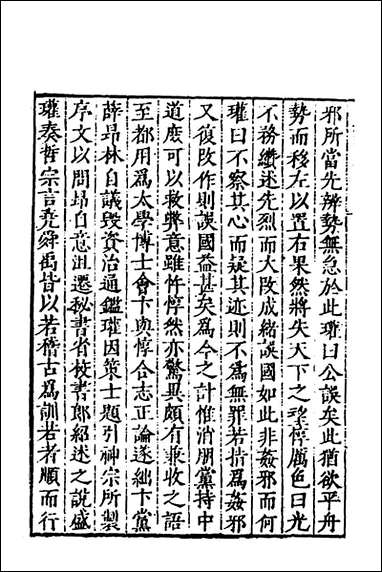 邪所當先辨勢無急於此瓘曰公誤矣此猶欲平舟
勢而移左以置右果然將失天下之望惇厲色曰光
不務纉述先烈而大改成緒誤國如此非姦邪而何
瓘曰不察其心而疑其迹則不爲無罪若指爲姦邪
又復改作則誤國益甚矣爲今之計惟消朋黨持中
道庶可以救弊意雖忤惇然亦驚異頗有兼收之語
至都用爲太學博士會卞與惇合志正論遂絀卞黨
薛昂林自議毀資治通鑑瓘因策士題引神宗所製
序文以問昂自意沮遷秘書省校書郎紹述之說盛
瓘奏哲宗言堯舜禹皆以若稽古爲訓若者順而行